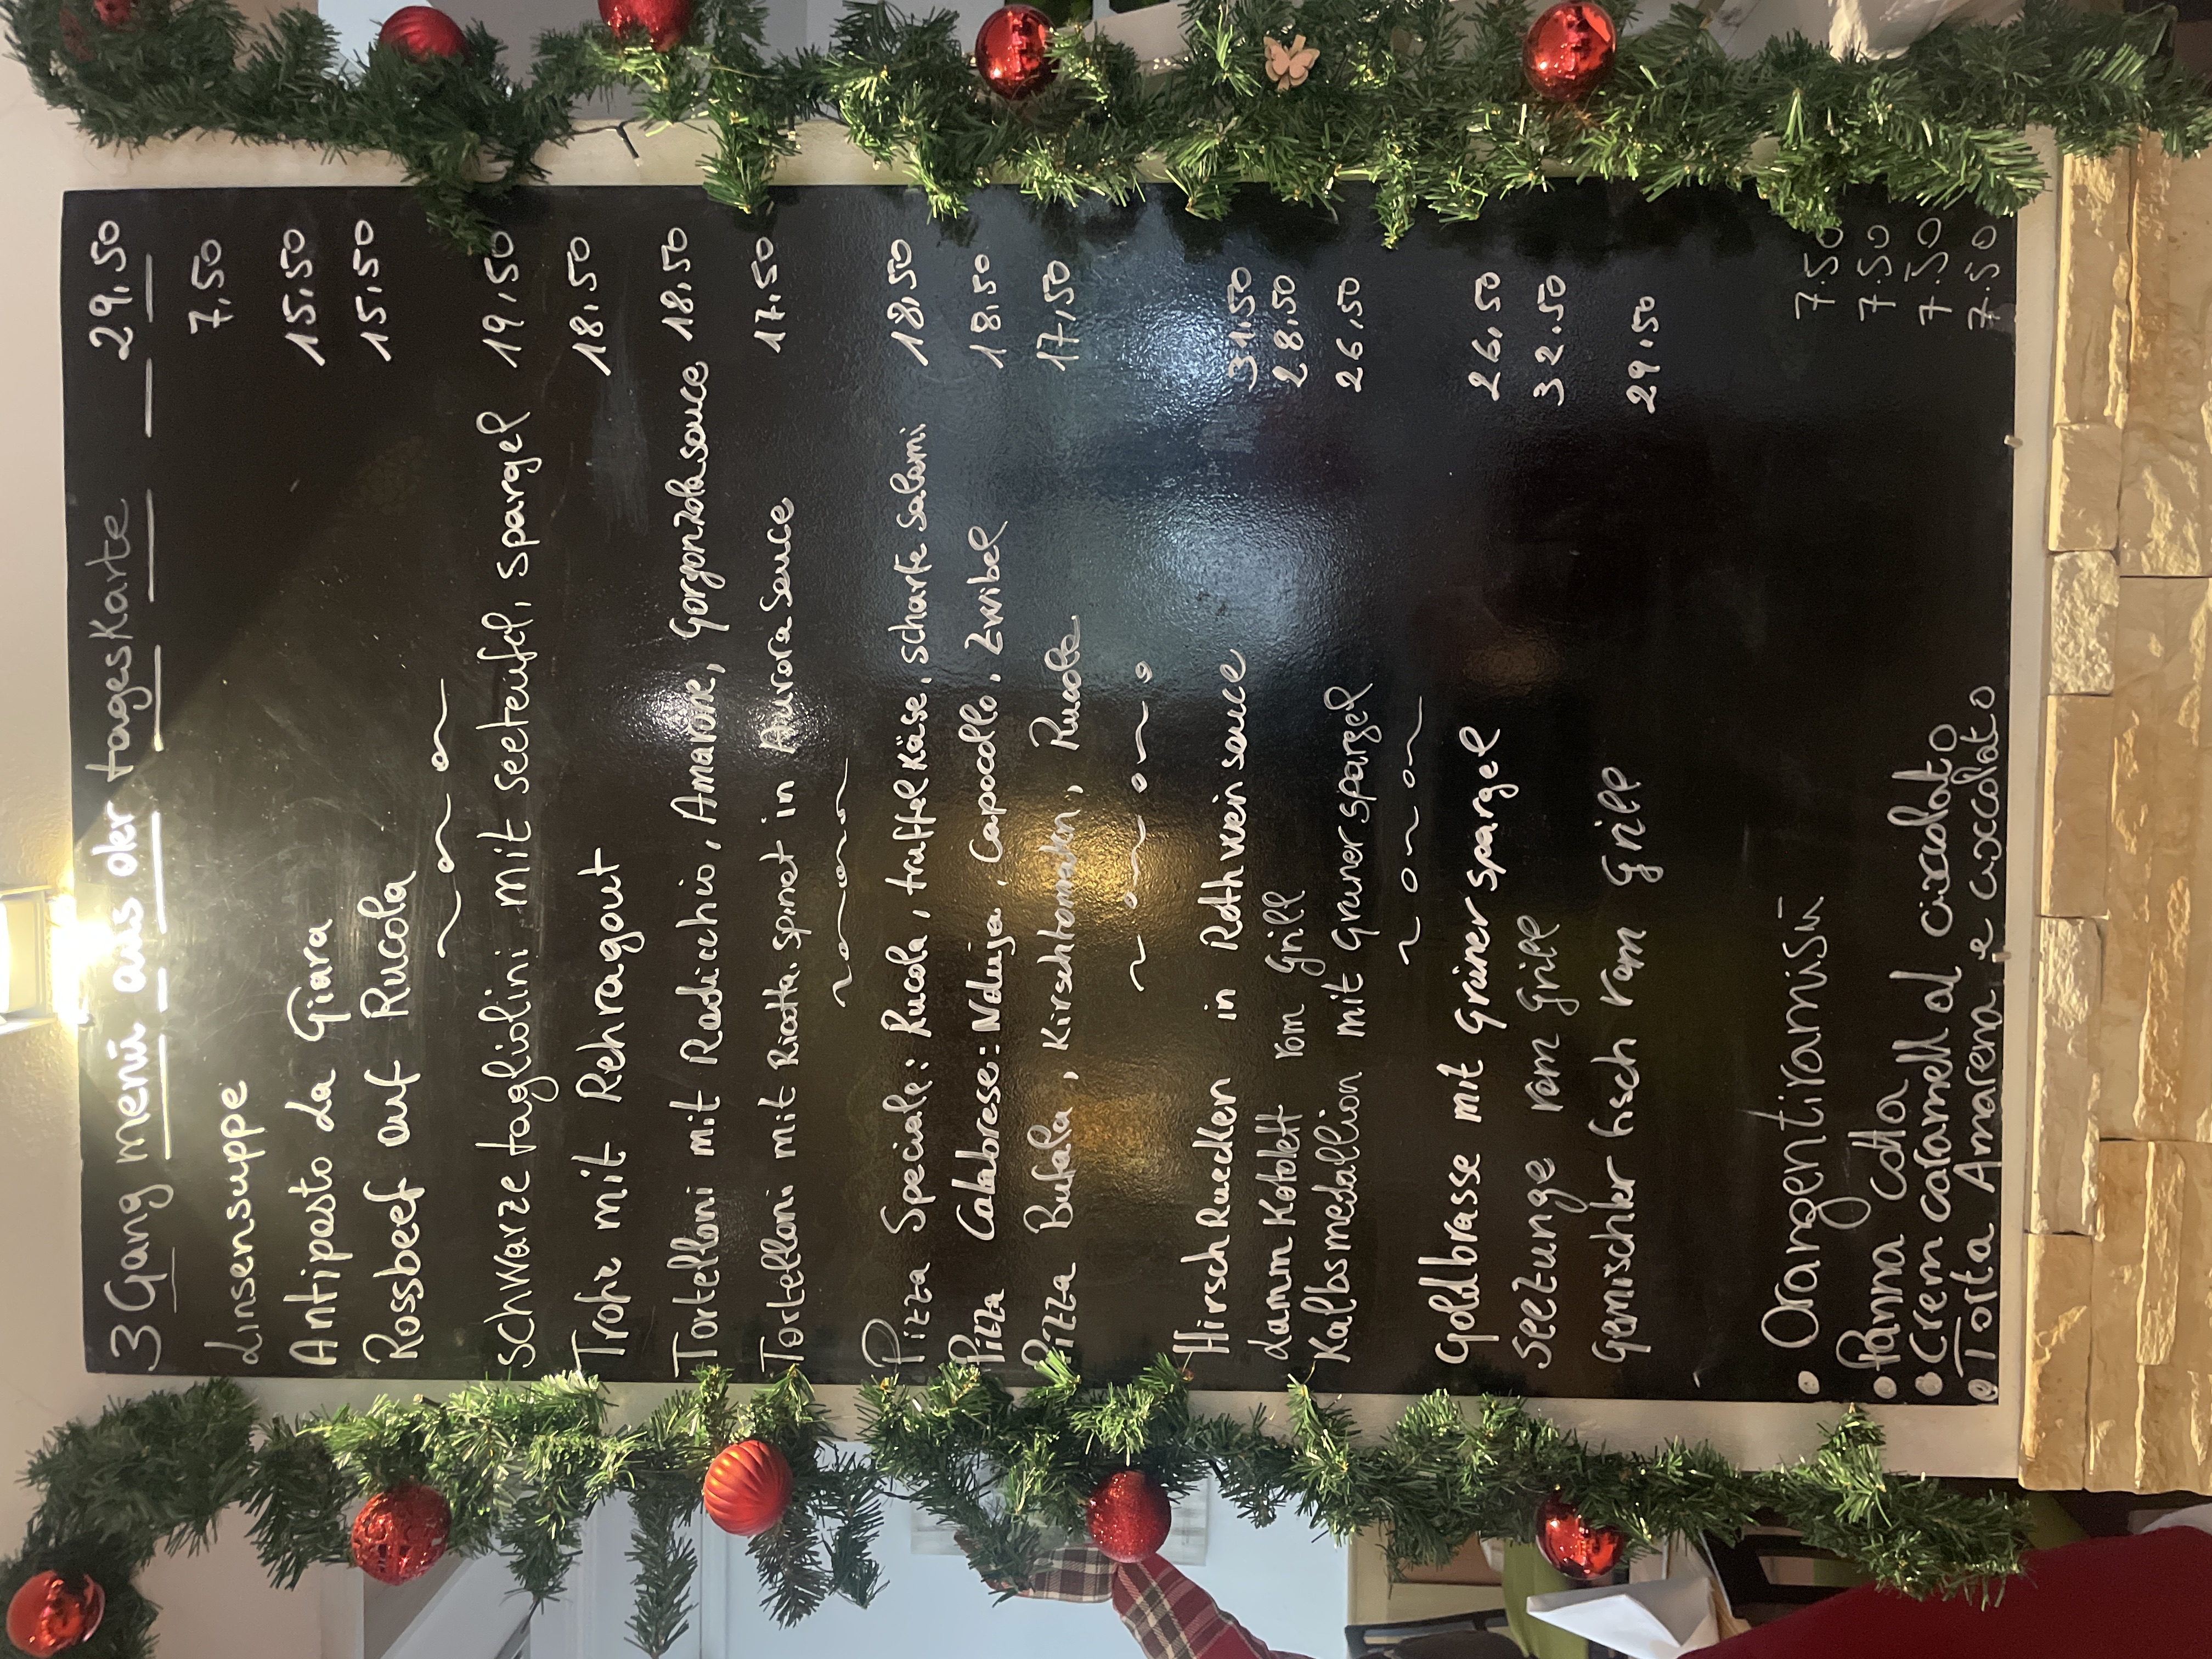 3 Gang menü aus der tageskarte 29,50
Linsensuppe 7,50
Antipasto da Giara 15,50
Rossbeef auf Rucola 15,50
Schwarze tagliolini mit seeteufel, spargel 19,50
Trofie mit Rehragout 18,50
Tortelloni mit Radicchio, Amarone, gorgonzolasauce 18,50
Tortelloni mit Ricotta, spinat in Aurora Sauce 17,50
Pizza Speciale: Rucola, truffelkäse, scharfe Salami 18,50
Pizza Calabrese: Nduja, Capocollo, Zwibel 18,50
Pizza Bufala, Kirschtomaten, Rucola 17,50
HirschRuecken in Rothweinsauce 31,50
Lamm Kotolett vom Grill 28,50
Kalbsmedallion mit Grüner spargel 26,50
Goldbrasse mit Grüner spargel 26,50
Seezunge vom Grill 32.50
Gemischter fisch vom Grill 29.50
• Orangentiramisü 7.50
• Panna cotta 7.50
• Crem caramell al cioccolato 7.50
• Torta Amarena e cioccolato 7.50